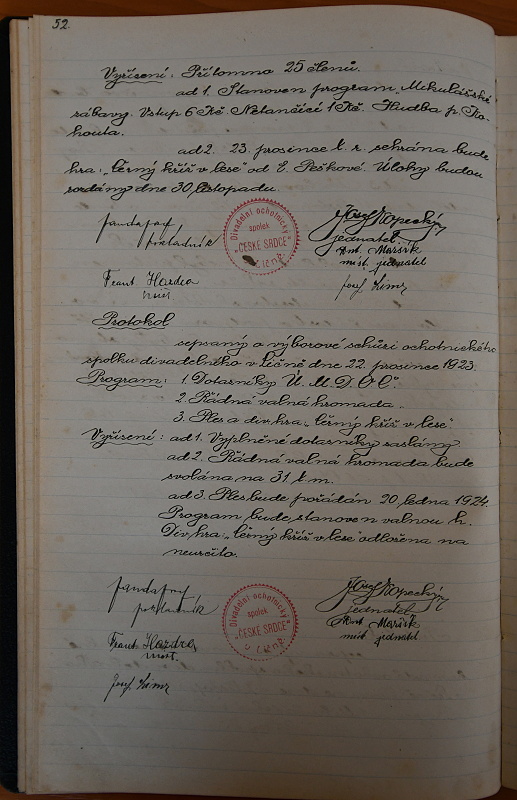 52.
Vyřízení: Přítomno 25 členů.
ad 1. Stanoven program „Mikulášské
zábavy. Vstup 6 Kč. Netančící 1 Kč. Hudba p. Ko-
houta.
ad 2. 23. prosince t. r. sehrána bude
hra: „Černý kříž v lese" od E. Peškové. Úlohy budou
rozdány dne 30 listopadu.
Divadelní ochotnický
spolek
„ČESKÉ SRDCE"
v Líčně
Josef Kopecký
pokladník
jednatel.
Ant. Maršík
míst. jednatel
Frant. Hazdra
míst.
Protokol
sepsaný o výborové schůzi ochotnického
spolku divadelního v Líčně dne 22. prosince 1923.
Program: 1. Dotazníky Ú. M. D. O. Č.
2. Řádná valná hromada.
3. Ples a div. hra „Černý kříž v lese"
Vyřízení: ad 1. Vyplněné dotazníky zaslány
ad 2. Řádná valná hromada bude
svolána na 31. t. m.
ad 3. Ples bude pořádán 20 ledna 1924.
Program bude stanoven valnou h.
Div. hra: „Černý kříž v lese" odložena na
neurčito.
Divadelní ochotnický
spolek
„ČESKÉ SRDCE"
v Líčně
Josef Kopecký
pokladník
jednatel
Ant. Maršík
míst. jednatel
Frant. Hazdra
míst.